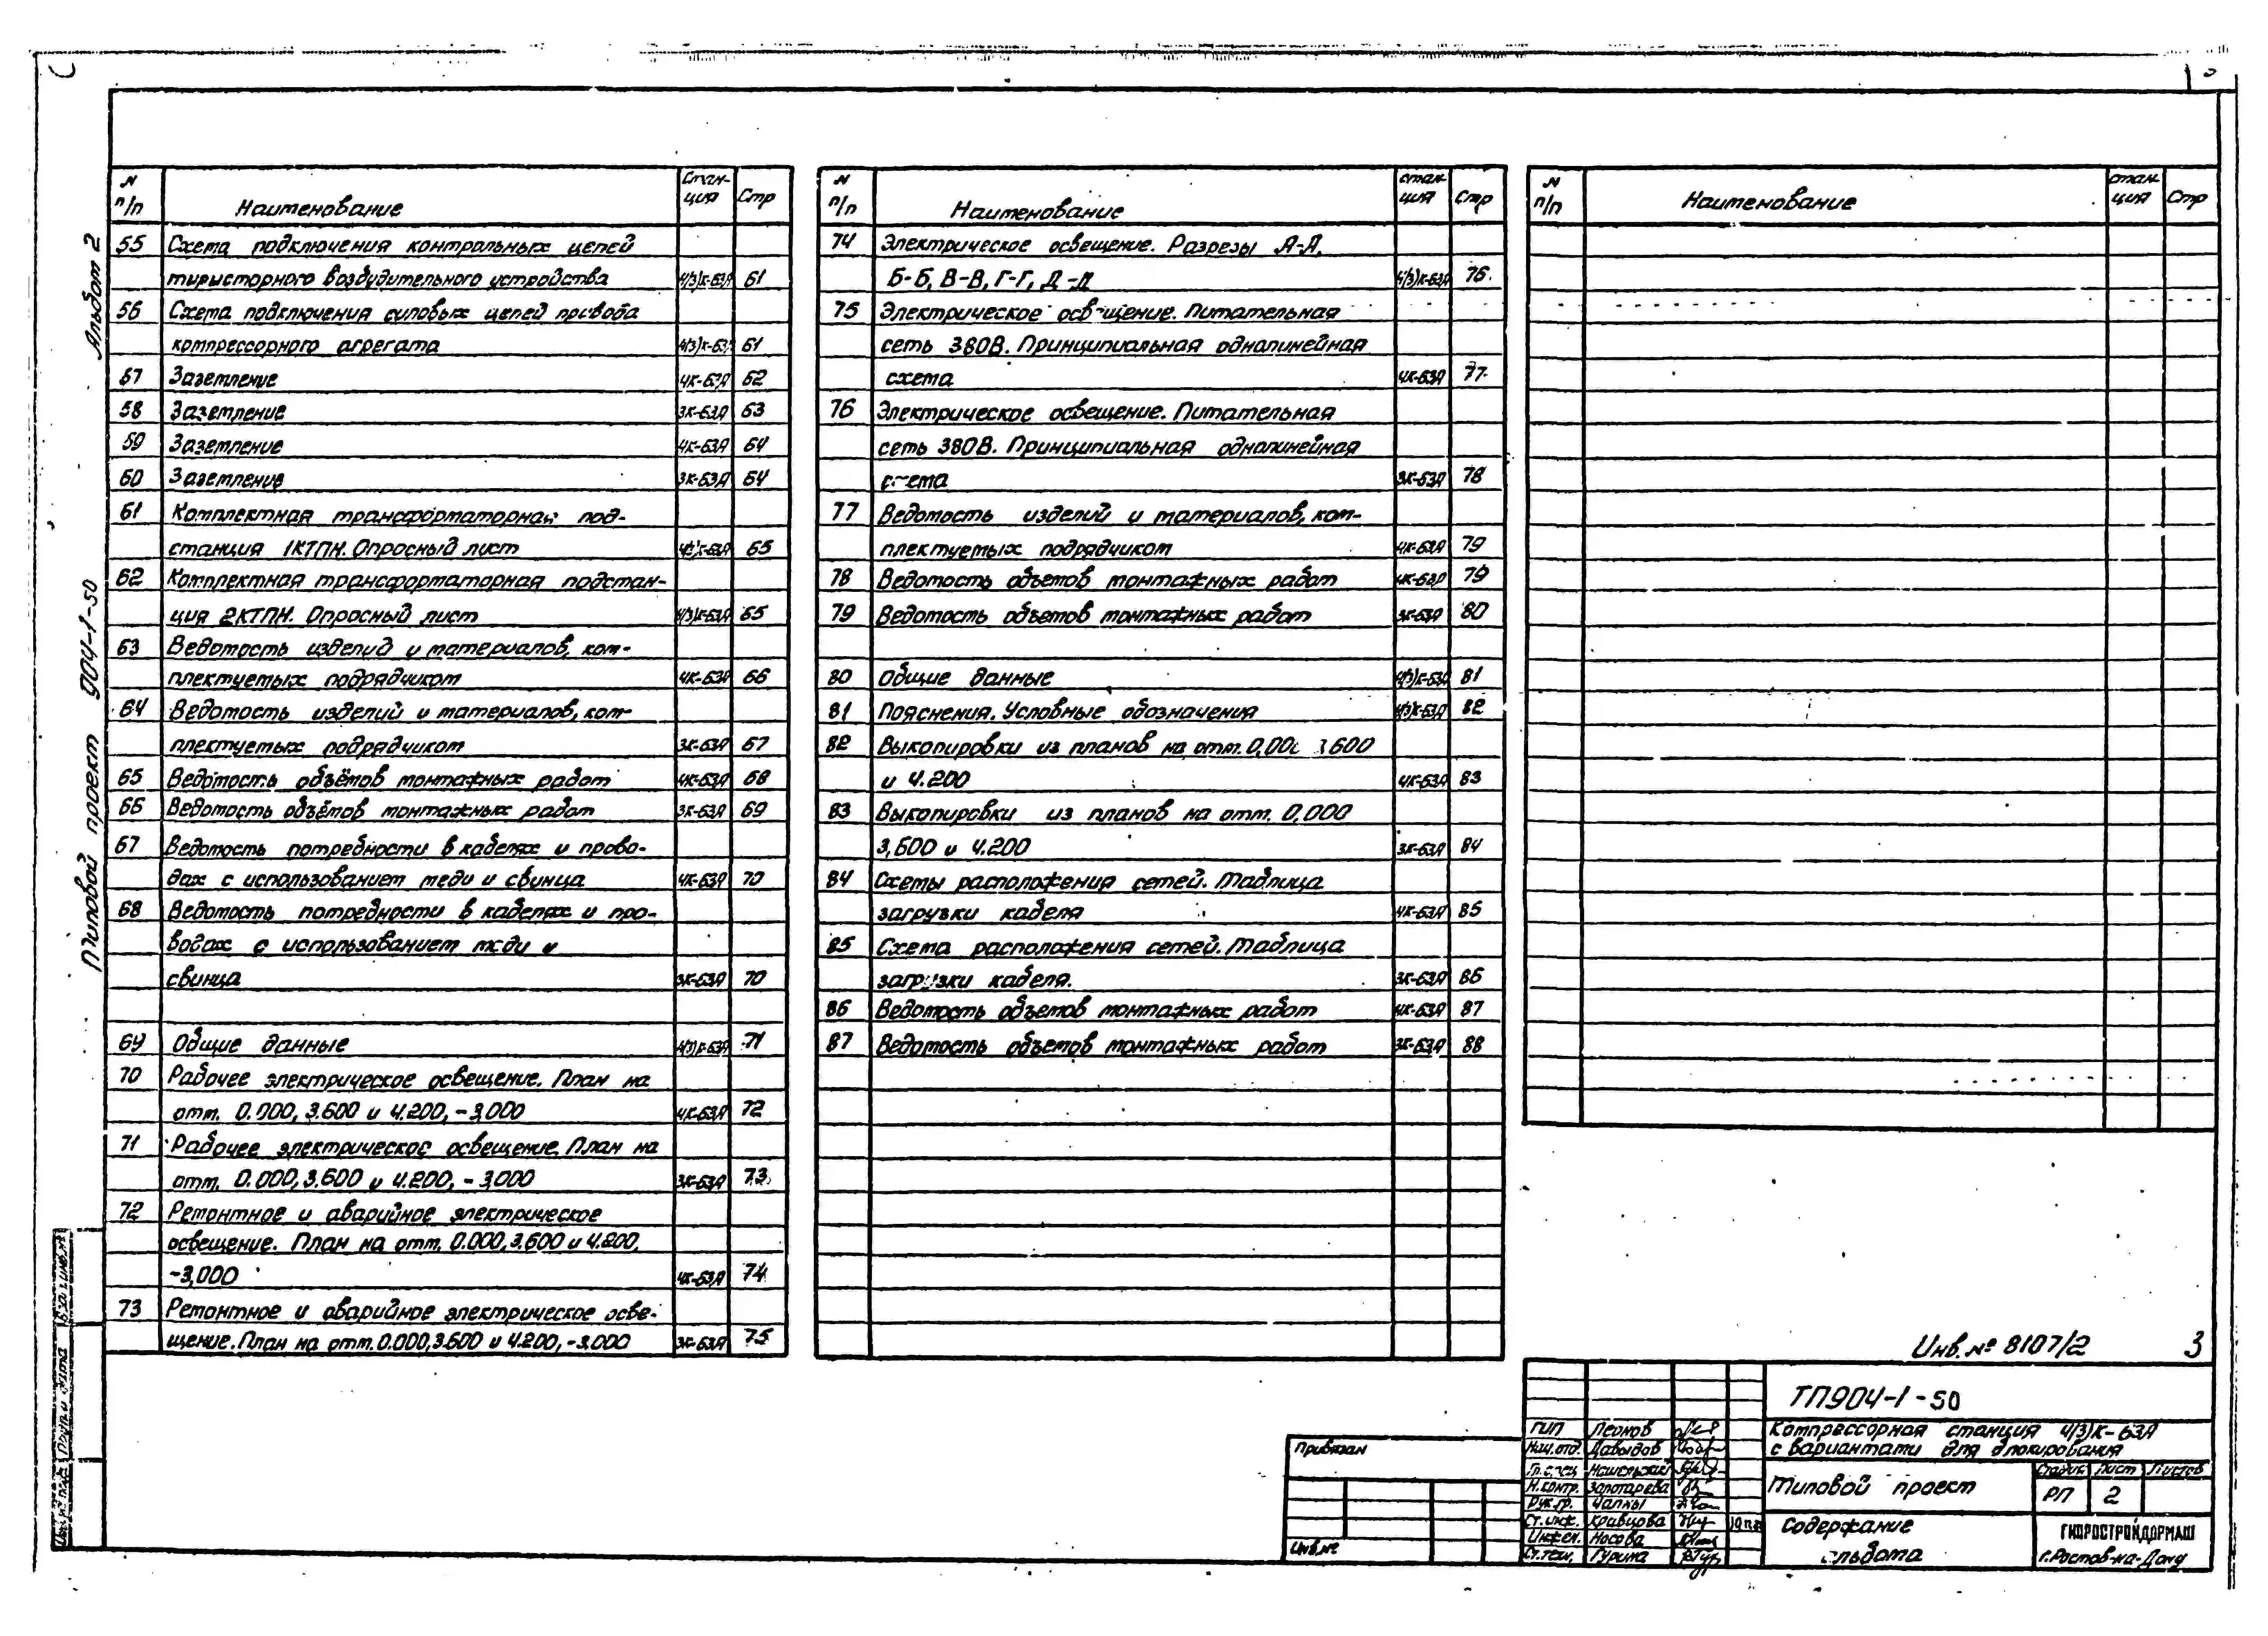 Альбом 2
Типовой проект 904-1-50
N п/п Наименование Стан-ция Стр
55 Схема подключения контрольных цепей
тиристорного возбудительного устройства 4(3)К-63А 61
56 Схема подключения силовых цепей привода
компрессорного агрегата 4(3)К-63А 61
57 Заземление 4К-63А 62
58 Заземление 3К-63А 63
59 Заземление 4К-63А 64
60 Заземление 3К-63А 64
61 Комплектная трансформаторная под-
станция 1КТПН. Опросный лист 4(3)К-63А 65
62 Комплектная трансформаторная подстан-
ция 2КТПН. Опросный лист 4(3)К-63А 65
63 Ведомость изделий и материалов, ком-
плектуемых подрядчиком 4К-63А 66
64 Ведомость изделий и материалов, ком-
плектуемых подрядчиком 3К-63А 67
65 Ведомость объёмов монтажных работ 4К-63А 68
66 Ведомость объёмов монтажных работ 3К-63А 69
67 Ведомость потребности в кабелях и прово-
дах с использованием меди и свинца 4К-63А 70
68 Ведомость потребности в кабелях и про-
водах с использованием меди и
свинца 3К-63А 70
69 Общие данные 4(3)К-63А 71
70 Рабочее электрическое освещение. План на
отм. 0.000, 3.600 и 4.200, -3,000 4К-63А 72
71 Рабочее электрическое освещение. План на
отм. 0.000, 3.600 и 4.200, -3.000 3К-63А 73
72 Ремонтное и аварийное электрическое
освещение. План на отм. 0.000, 3.600 и 4.200,
-3,000 4К-63А 74
73 Ремонтное и аварийное электрическое осве-
щение. План на отм. 0.000, 3.600 и 4.200, -3.000 3К-63А 75
N п/п Наименование стан-ция Стр
74 Электрическое освещение. Разрезы А-А,
Б-Б, В-В, Г-Г, Д-Д 4(3)К-63А 76
75 Электрическое освещение. Питательная
сеть 380В. Принципиальная однолинейная
схема 4К-63А 77
76 Электрическое освещение. Питательная
сеть 380В. Принципиальная однолинейная
схема 3К-63А 78
77 Ведомость изделий и материалов, ком-
плектуемых подрядчиком 4К-63А 79
78 Ведомость объемов монтажных работ 4К-63А 79
79 Ведомость объемов монтажных работ 3К-63А 80
80 Общие данные 4(3)К-63А 81
81 Пояснения. Условные обозначения 4(3)К-63А 82
82 Выкопировки из планов на отм. 0,000 3,600
и 4.200 4К-63А 83
83 Выкопировки из планов на отм. 0,000
3,600 и 4.200 3К-63А 84
84 Схемы расположения сетей. Таблица
загрузки кабеля 4К-63А 85
85 Схема расположения сетей. Таблица
загрузки кабеля. 3К-63А 86
86 Ведомость объемов монтажных работ 4К-63А 87
87 Ведомость объемов монтажных работ 3К-63А 88
N п/п Наименование стан-ция Стр
Инв. № 8107/2 3
ТП904-1-50
Компрессорная станция 4(3)К-63А
с вариантами для блокирования
Типовой проект
Стадия Лист Листов
РП 2
Содержание
альбома
ГИПРОСТРОЙДОРМАШ
г. Ростов-на-Дону
ГИП Леонов
Нач. отд. Давыдов
Гл. спец.
Н. контр. Золотарева
Рук. гр. Чалны
Ст. инж. Кравцова
Инжен. Носова
Ст. техн. Гурина
Привязан
Инв. №